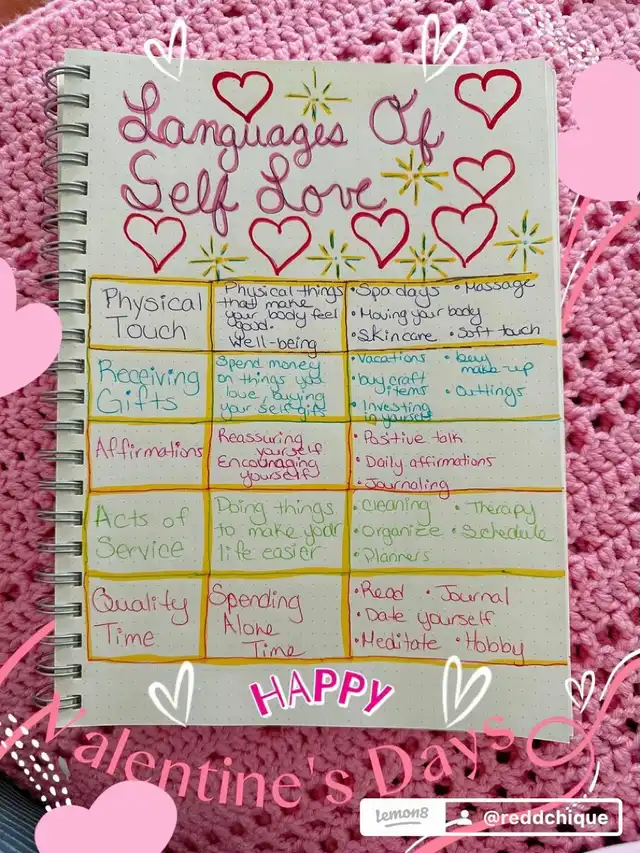 Languages Of
Self Love
Physical
Touch
Physical things
that make
your body feel
good.
Well-being
• Spa days • Massage
• Moving your body
• Skincare • Soft touch
Receiving
Gifts
Spend money
on things you
love, buying
your self gift
• Vacations • buy
make-up
• buy craft
items • Outtings
• Investing
in yourself
Affirmations
Reassuring
yourself
Encouraging
yourself
• Positive talk
• Daily affirmations
• Journaling
Acts of
Service
Doing things
to make your
life easier
• Cleaning • Therapy
• Organize • Schedule
• Planners
Quality
Time
Spending
Alone
Time
• Read • Journal
• Date yourself
• Meditate • Hobby
HAPPY
Valentine's Days
Lemon8 @reddchique